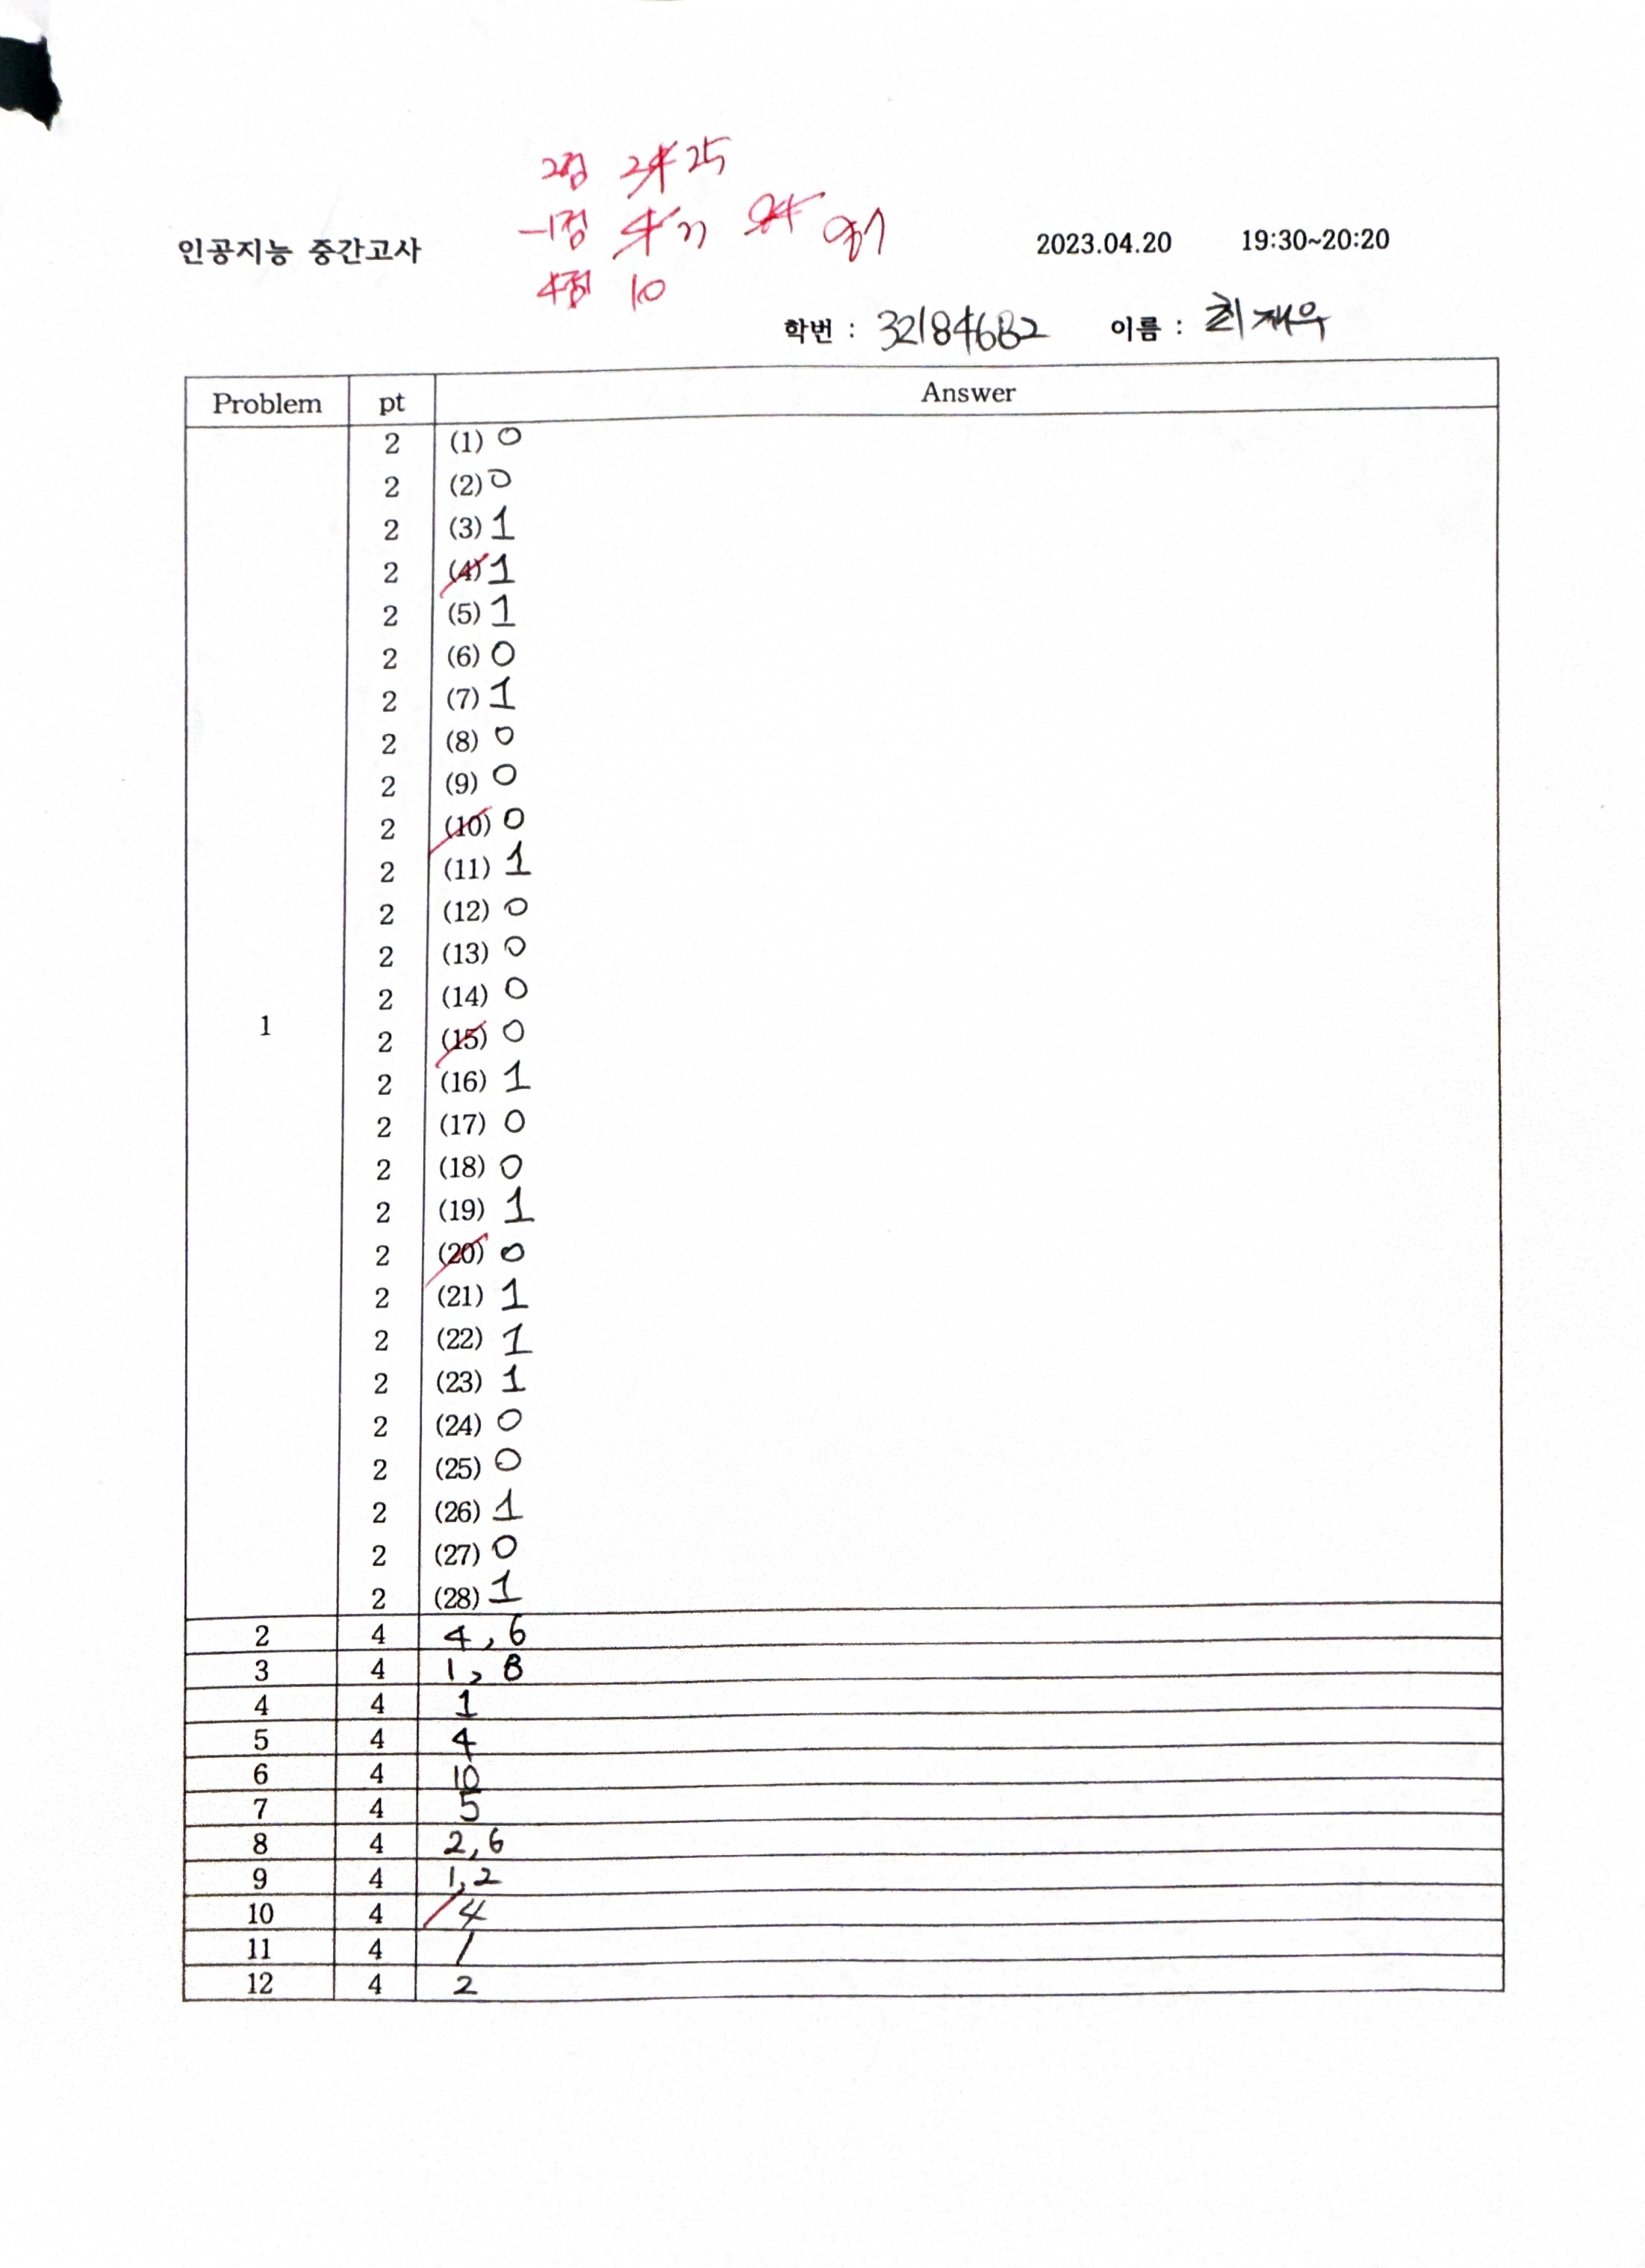 2점 24 25
-1점 4 3 84 87
인공지능 중간고사 2023.04.20 19:30~20:20
4점 10
학번 : 32184682 이름 : 최재우
Problem pt Answer
2 (1) 0
2 (2) 0
2 (3) 1
2 (4) 1
2 (5) 1
2 (6) 0
2 (7) 1
2 (8) 0
2 (9) 0
2 (10) 0
2 (11) 1
2 (12) 0
2 (13) 0
2 (14) 0
1 2 (15) 0
2 (16) 1
2 (17) 0
2 (18) 0
2 (19) 1
2 (20) 0
2 (21) 1
2 (22) 1
2 (23) 1
2 (24) 0
2 (25) 0
2 (26) 1
2 (27) 0
2 (28) 1
2 4 4, 6
3 4 1, 8
4 4 1
5 4 4
6 4 10
7 4 5
8 4 2, 6
9 4 1, 2
10 4 4
11 4 1
12 4 2